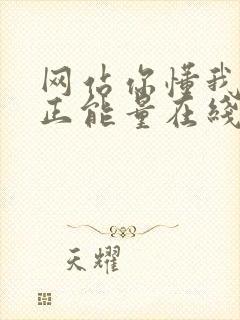 网佔你懂我
正能量在线
天耀